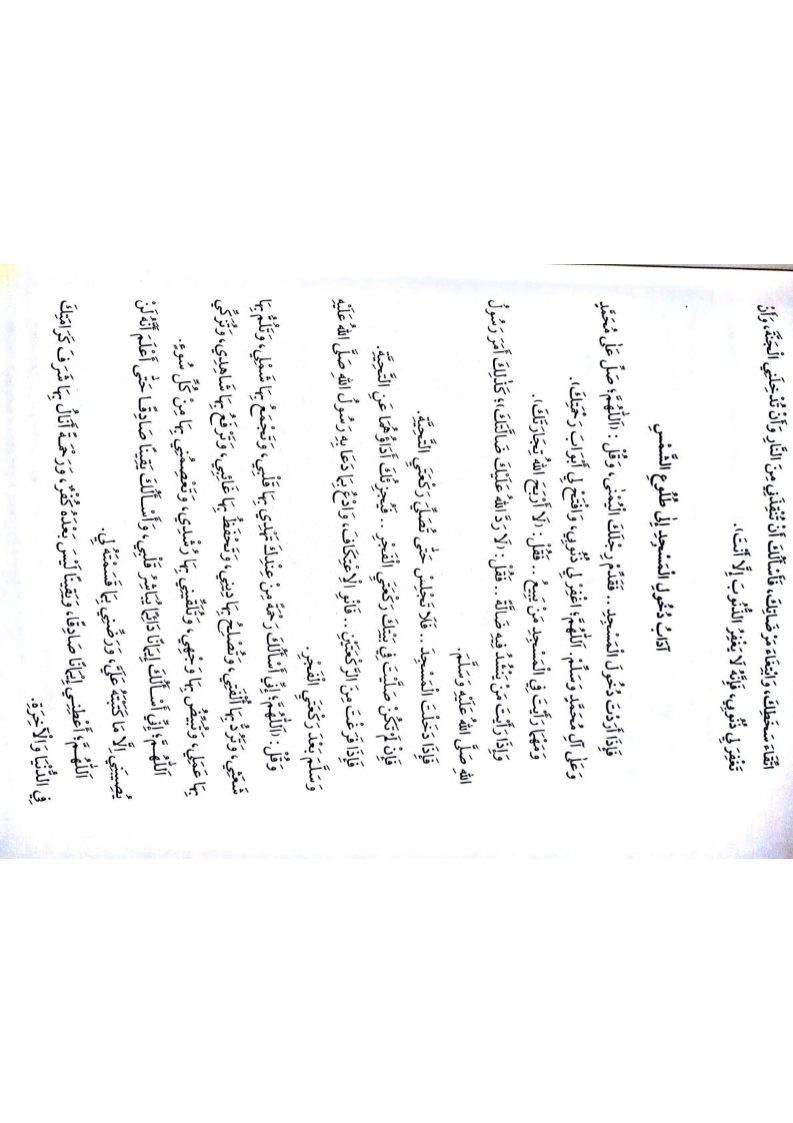 اتِّقَاءَ سَخَطِكَ، وَابْتِغَاءَ مَرْضَاتِكَ، فَأَسْأَلُكَ أَنْ تُنْقِذَنِي مِنَ النَّارِ وَأَنْ تُدْخِلَنِي الْجَنَّةَ، وَأَنْ
تَغْفِرَ لِي ذُنُوبِي، فَإِنَّهُ لَا يَغْفِرُ الذُّنُوبَ إِلَّا أَنْتَ).
آدَابُ دُخُولِ الْمَسْجِدِ إِلَى طُلُوعِ الشَّمْسِ
فَإِذَا أَرَدْتَ دُخُولَ الْمَسْجِدِ.. فَقَدِّمْ رِجْلَكَ الْيُمْنَى، وَقُلْ: (اَللّٰهُمَّ؛ صَلِّ عَلَى مُحَمَّدٍ
وَعَلَى آلِ مُحَمَّدٍ وَسَلِّمْ. اَللّٰهُمَّ؛ اغْفِرْ لِي ذُنُوبِي، وَافْتَحْ لِي أَبْوَابَ رَحْمَتِكَ).
وَمَهْمَا رَأَيْتَ فِي الْمَسْجِدِ مَنْ يَبِيعُ.. فَقُلْ: (لَا أَرْبَحَ اللهُ تِجَارَتَكَ).
وَإِذَا رَأَيْتَ مَنْ يَنْشُدُ فِيهِ ضَالَّةً.. فَقُلْ: (لَا رَدَّ اللهُ عَلَيْكَ ضَالَّتَكَ)؛ كَذٰلِكَ أَمَرَ رَسُولُ
اللهِ صَلَّى اللهُ عَلَيْهِ وَسَلَّمَ.
فَإِذَا دَخَلْتَ الْمَسْجِدَ.. فَلَا تَجْلِسْ حَتَّى تُصَلِّيَ رَكْعَتَيِ التَّحِيَّةِ.
فَإِنْ لَمْ تَكُنْ صَلَّيْتَ فِي بَيْتِكَ رَكْعَتَيِ الْفَجْرِ.. فَيُجْزِئُكَ أَدَاؤُهُمَا عَنِ التَّحِيَّةِ.
فَإِذَا فَرَغْتَ مِنَ الرَّكْعَتَيْنِ.. فَانْوِ الْاِعْتِكَافَ، وَادْعُ بِمَا دَعَا بِهِ رَسُولُ اللهِ صَلَّى اللهُ عَلَيْهِ
وَسَلَّمَ بَعْدَ رَكْعَتَيِ الْفَجْرِ.
وَقُلْ: (اَللّٰهُمَّ؛ إِنِّي أَسْأَلُكَ رَحْمَةً مِنْ عِنْدِكَ تَهْدِي بِهَا قَلْبِي، وَتَجْمَعُ بِهَا شَمْلِي، وَتَلُمُّ بِهَا
شَعَثِي، وَتَرُدُّ بِهَا أُلْفَتِي، وَتُصْلِحُ بِهَا دِينِي، وَتَحْفَظُ بِهَا غَائِبِي، وَتَرْفَعُ بِهَا شَاهِدِي، وَتُزَكِّي
بِهَا عَمَلِي، وَتُبَيِّضُ بِهَا وَجْهِي، وَتُلَقِّنُنِي بِهَا رُشْدِي، وَتَعْصِمُنِي بِهَا مِنْ كُلِّ سُوءٍ.
اَللّٰهُمَّ؛ إِنِّي أَسْأَلُكَ إِيمَانًا دَائِمًا يُبَاشِرُ قَلْبِي، وَأَسْأَلُكَ يَقِينًا صَادِقًا حَتَّى أَعْلَمَ أَنَّهُ لَنْ
يُصِيبَنِي إِلَّا مَا كَتَبْتَهُ عَلَيَّ، وَرَضِّنِي بِمَا قَسَمْتَهُ لِي.
اَللّٰهُمَّ؛ أَعْطِنِي إِيمَانًا صَادِقًا، وَيَقِينًا لَيْسَ بَعْدَهُ كُفْرٌ، وَرَحْمَةً أَنَالُ بِهَا شَرَفَ كَرَامَتِكَ
فِي الدُّنْيَا وَالْآخِرَةِ.